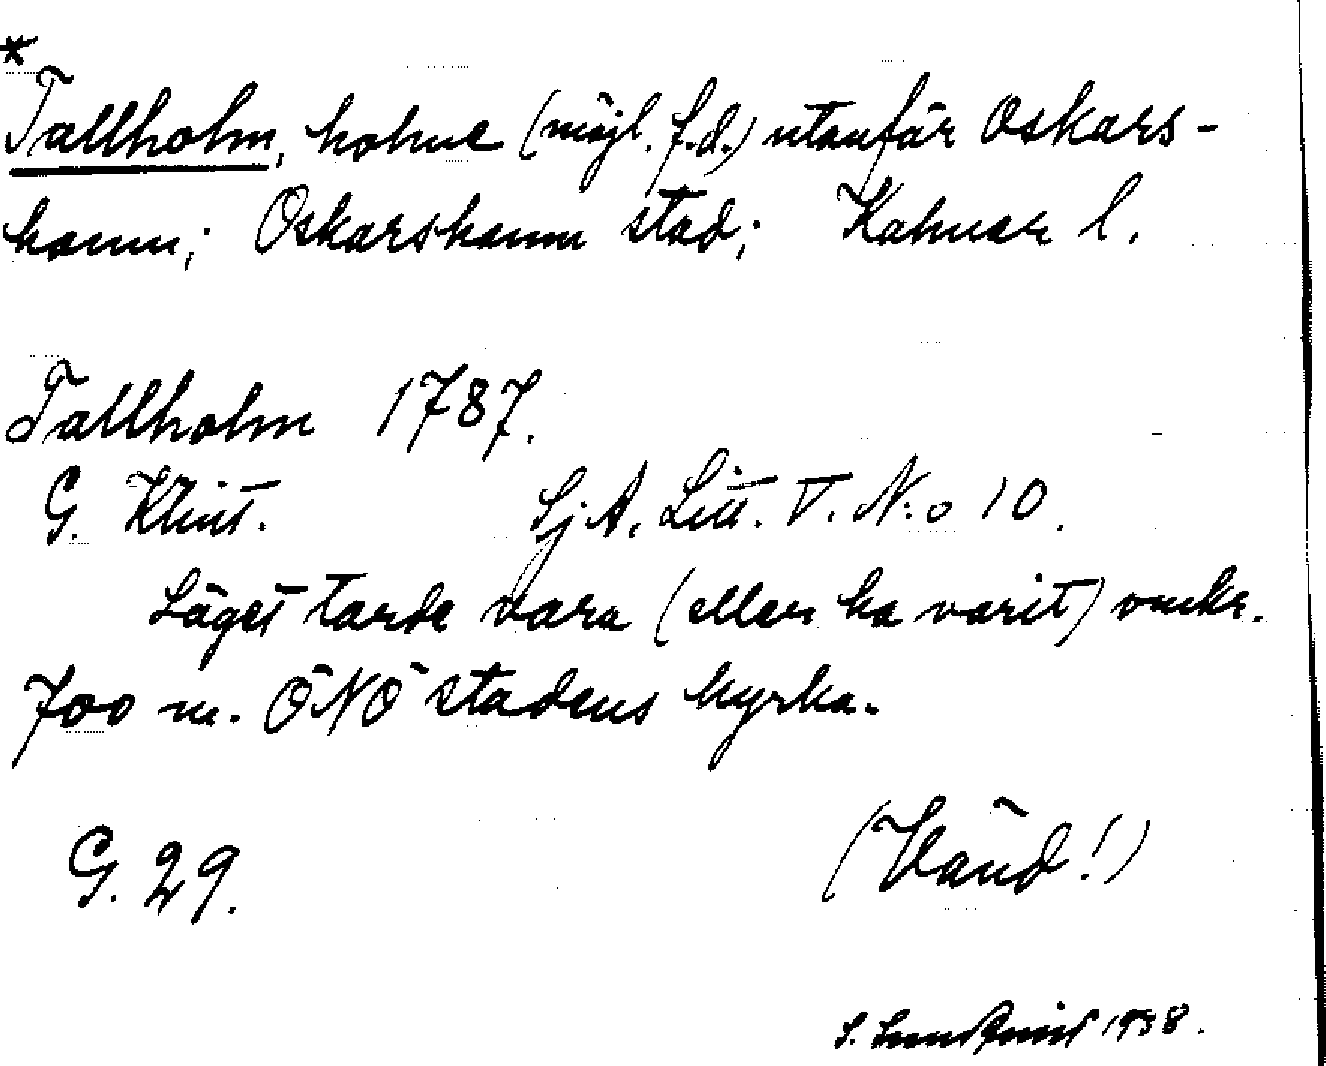 *
Tallholm, holme (möjl. f.d.) utanför Oskars-
hamn; Oskarshamn stad; Kalmar l.
Tallholm 1787.
G. Klint. Sj.A. Litt. V. N:o 10.
Läget torde vara (eller ha varit) omkr.
700 m. ÖNÖ stadens kyrka.
G. 29. (Vänd!)
S. Lundqvist 1938.